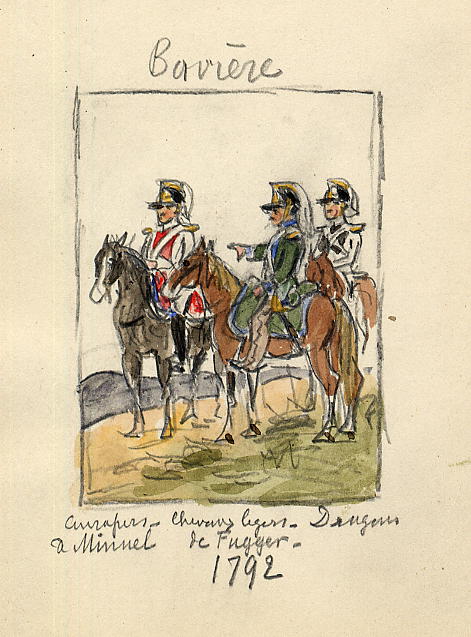 Bavière
Cuirassiers - Chevaux légers - Dragons
a Minuci de Fugger -
1792